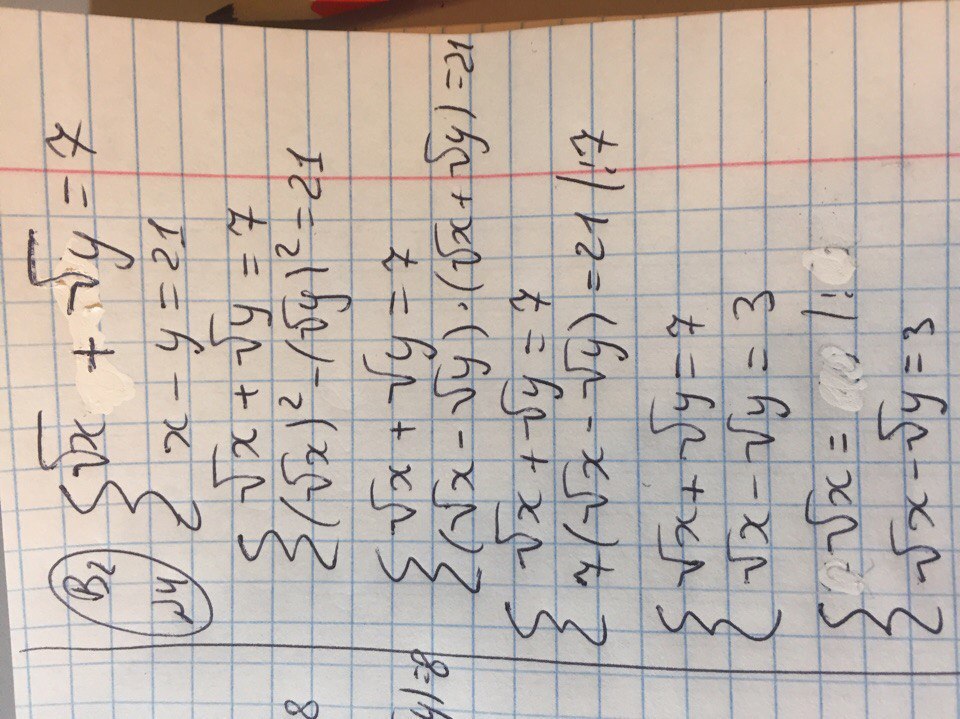 B2
√4
{ √x + √y = 7
x - y = 21
{ √x + √y = 7
(√x)² - (√y)² = 21
{ √x + √y = 7
(√x - √y) · (√x + √y) = 21
{ √x + √y = 7
7(√x - √y) = 21 | :7
{ √x + √y = 7
√x - √y = 3
{ √x = | :
√x - √y = 3
8
y) = 8